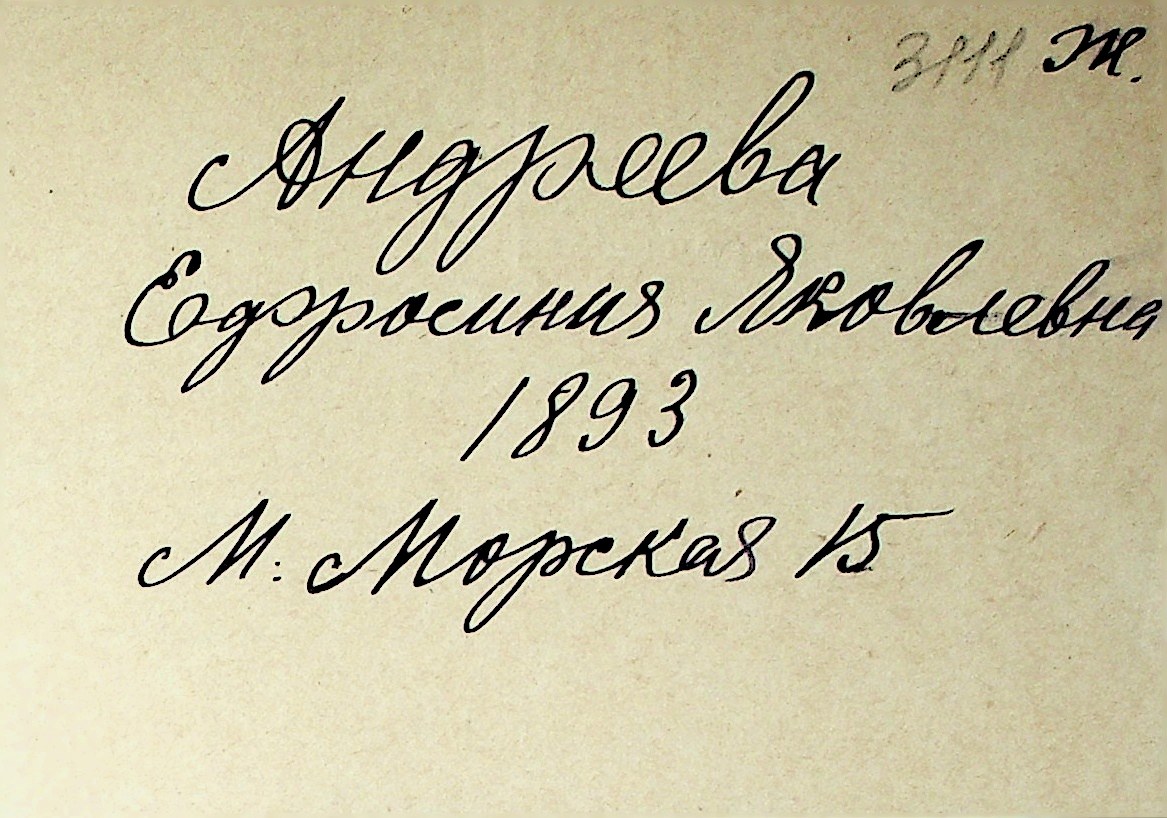 3111 Ж.
Андреева
Едфросиния Яковлевна
1893
М. Морская 15